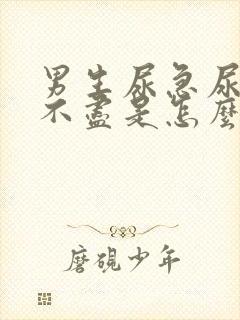 男生尿急尿
不盡是怎麼
磨硯少年